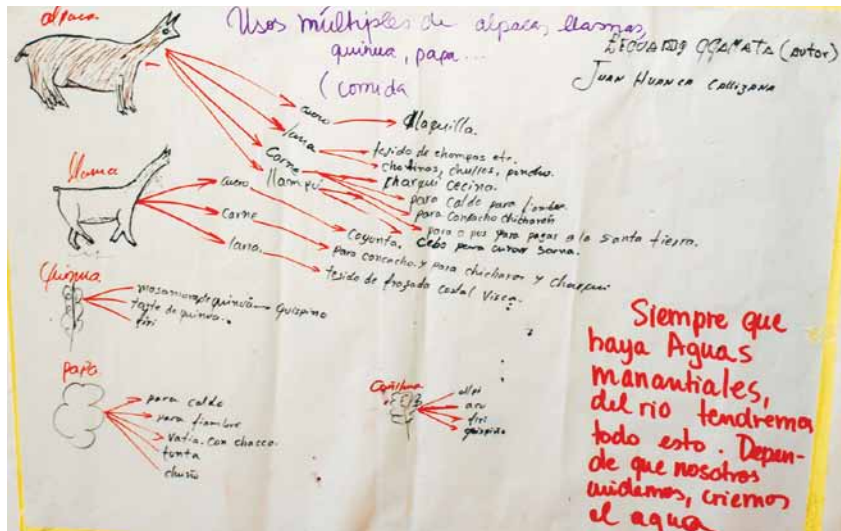 alpaca
Usos múltiples de alpacas llamas,
quinua, papa...
(comida
EDUARDO CCAMATA (autor)
JUAN HUANCA CALLIZANA
cuero
laquilla.
lana
tejido de chompas etc.
chalinas, chullos, poncho.
Carne
charqui cecina.
para caldo para fiambre
para concacho chicharon
llampu
para a pos para pagar a la santa tierra.
cebo para curar sarna.
llama
cuero
coyonta.
carne
para concacho y para chicharon y charqui
lana.
tejido de frazada costal
Quinua
masamora de quinua quispiño
torte de quinua.
firi
papa
para caldo
para fiambre
vatia. con chacco.
tunta
chuño
Cañihua
allpi
acu
firi
quispiño
Siempre que
haya Aguas
manantiales,
del rio tendremo
todo esto. Depen-
de que nosotros
cuidemos, criemos
el agua